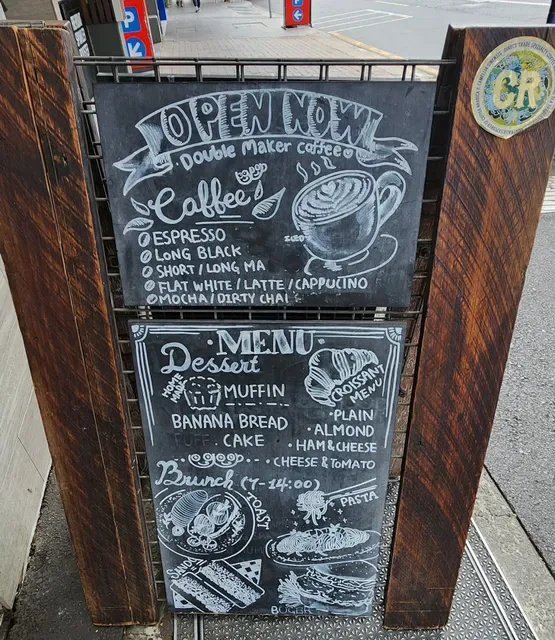 OPEN NOW
Double Maker coffee
Caffee
ICED
ESPRESSO
LONG BLACK
SHORT / LONG MA
FLAT WHITE / LATTE / CAPPUCINO
MOCHA / DIRTY CHAI
CR
·MENU·
Dessert
HOME MADE
MUFFIN
BANANA BREAD
PUFF. CAKE
CROISSANT MENU
·PLAIN
·ALMOND
·HAM & CHEESE
·CHEESE & TOMATO
Brunch (7-14:00)
TOAST
PASTA
SANDY
P
P